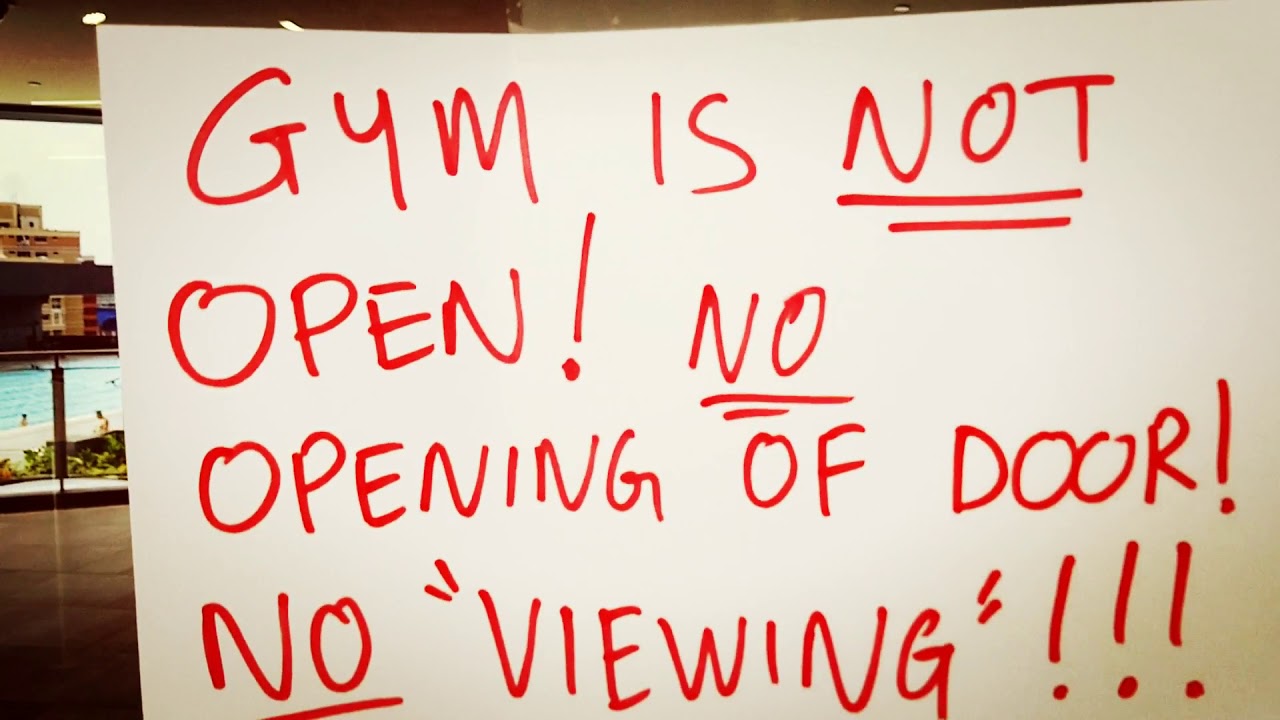 GYM IS NOT
OPEN! NO
OPENING OF DOOR!
NO "VIEWING"!!!